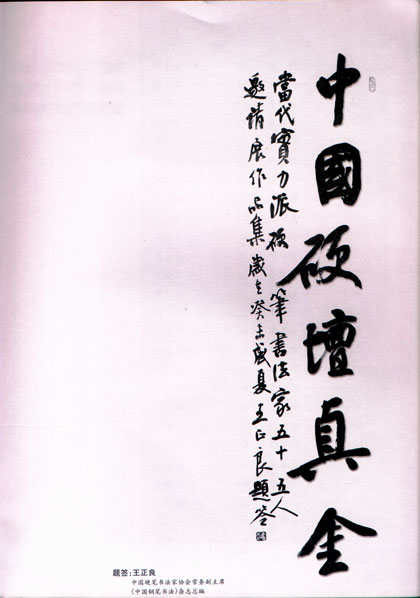 中國硬壇真金
當代實力派硬筆書法家五十五人
邀請展作品集歲在癸未盛夏王正良題簽
题签:王正良
中国硬笔书法家协会常务副主席
《中国钢笔书法》杂志总编